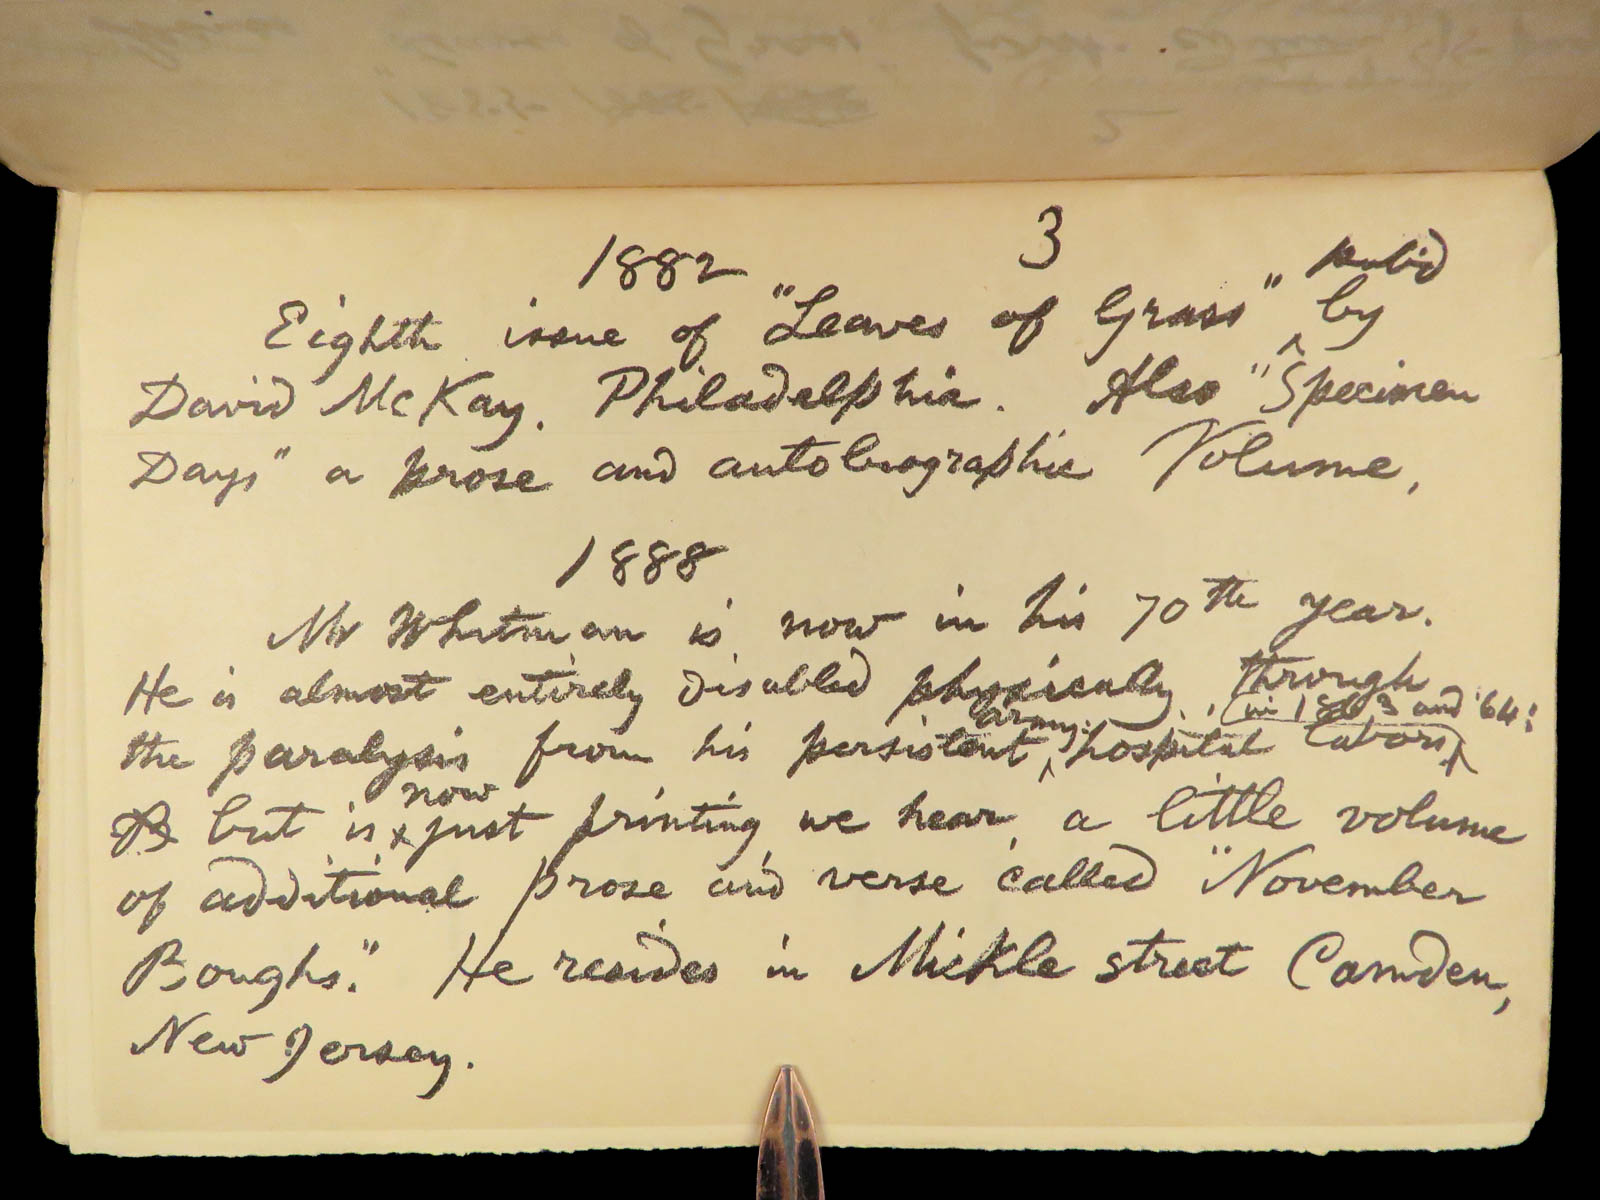 3
1882
Eighth issue of "Leaves of Grass" ^ pub'd by
David McKay, Philadelphia. Also "Specimen
Days" a prose and autobiographic Volume,
1888
Mr Whitman is now in his 70th year.
He is almost entirely disabled physically, through
the paralysis from his persistent, ^ army hospital labors ^ in 1863 and '64:
but is ^ now just printing, we hear, a little volume
of additional prose and verse called "November
Boughs." He resides in Mickle street Camden,
New Jersey.